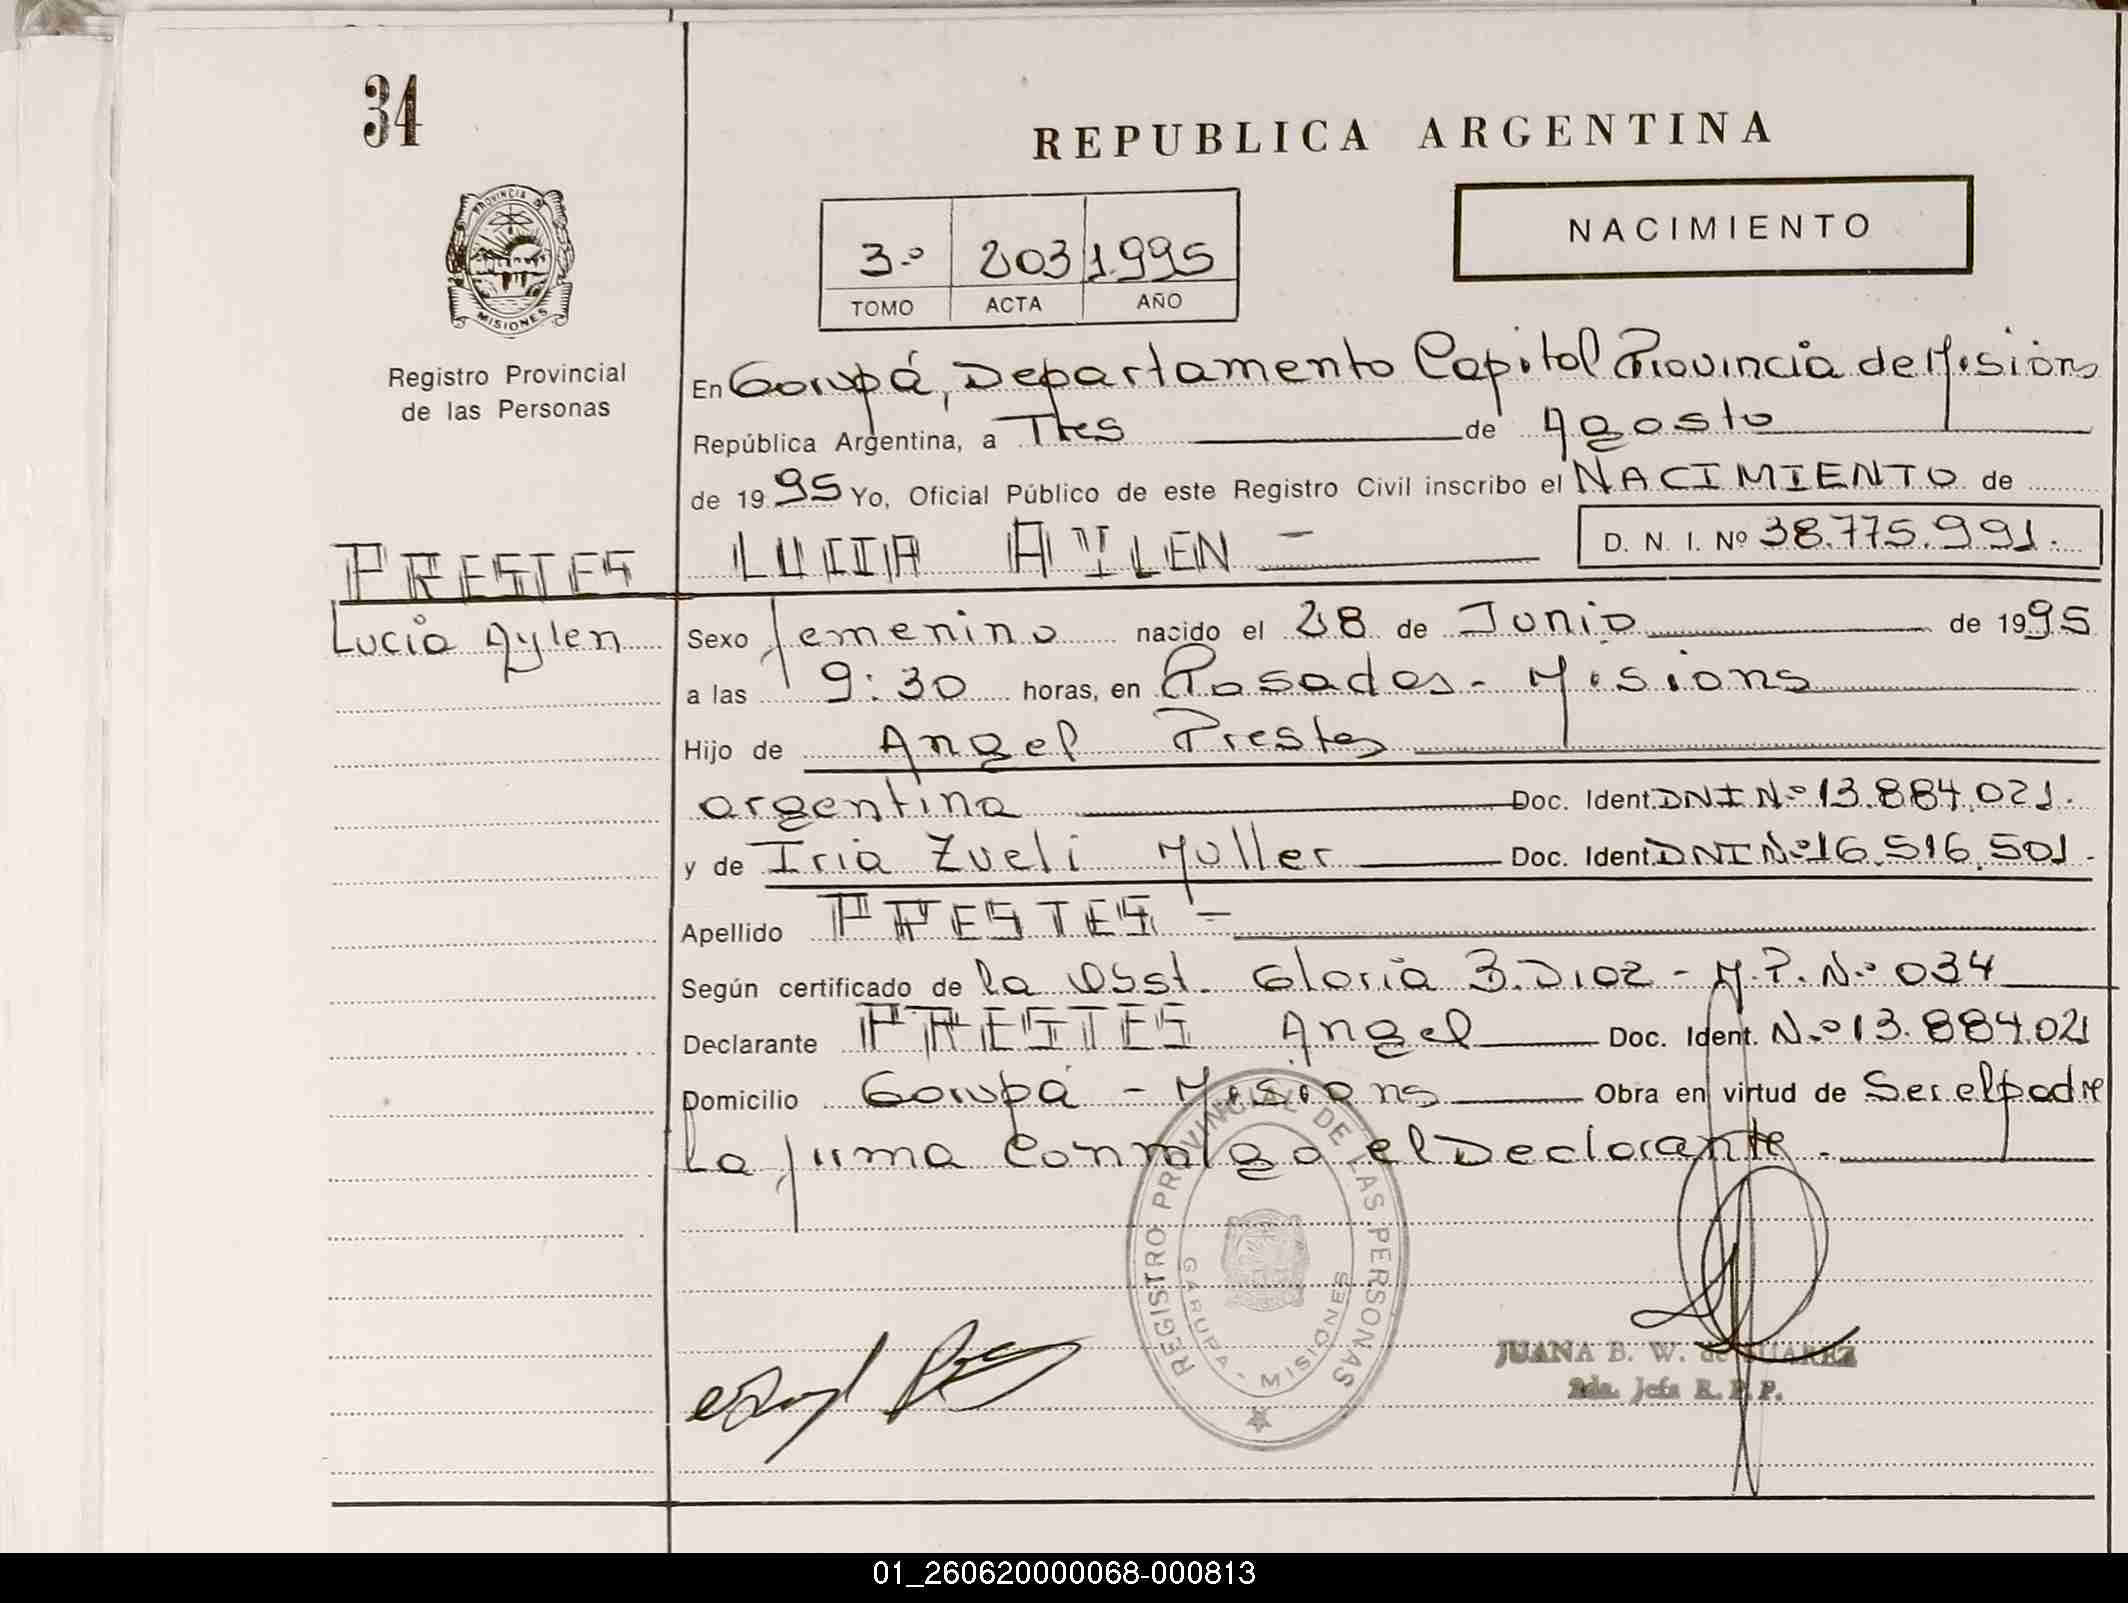 34
REPUBLICA ARGENTINA
PROVINCIA DE
MISIONES
Registro Provincial
de las Personas
3.º 203 1.995
TOMO ACTA AÑO
NACIMIENTO
En Garupá, Departamento Capital Provincia de Misions
República Argentina, a Tres de Agosto
de 19 95 Yo, Oficial Público de este Registro Civil inscribo el NACIMIENTO de
PRESTES
LUCIA AYLEN -
D. N. I. Nº 38.775.991.
Lucia Aylen
Sexo femenino nacido el 28 de Junio de 1995
a las 9:30 horas, en Posadas - Misions
Hijo de Angel Prestes
argentina Doc. Ident. DNI Nº 13.884.021.
y de Iria Zueli Muller Doc. Ident. DNI Nº 16.516.501.
Apellido PRESTES -
Según certificado de la Obst. Gloria B. Diaz - M.P. Nº 034
Declarante PRESTES Angel Doc. Ident. Nº 13.884.021
Domicilio Garupá - Misions Obra en virtud de Ser el padre
La firma conmigo el Declarante.
REGISTRO PROVINCIAL DE LAS PERSONAS
GARUPA - MISIONES
JUANA B. W. de SUAREZ
2da. Jefa R. P. P.
01_260620000068-000813